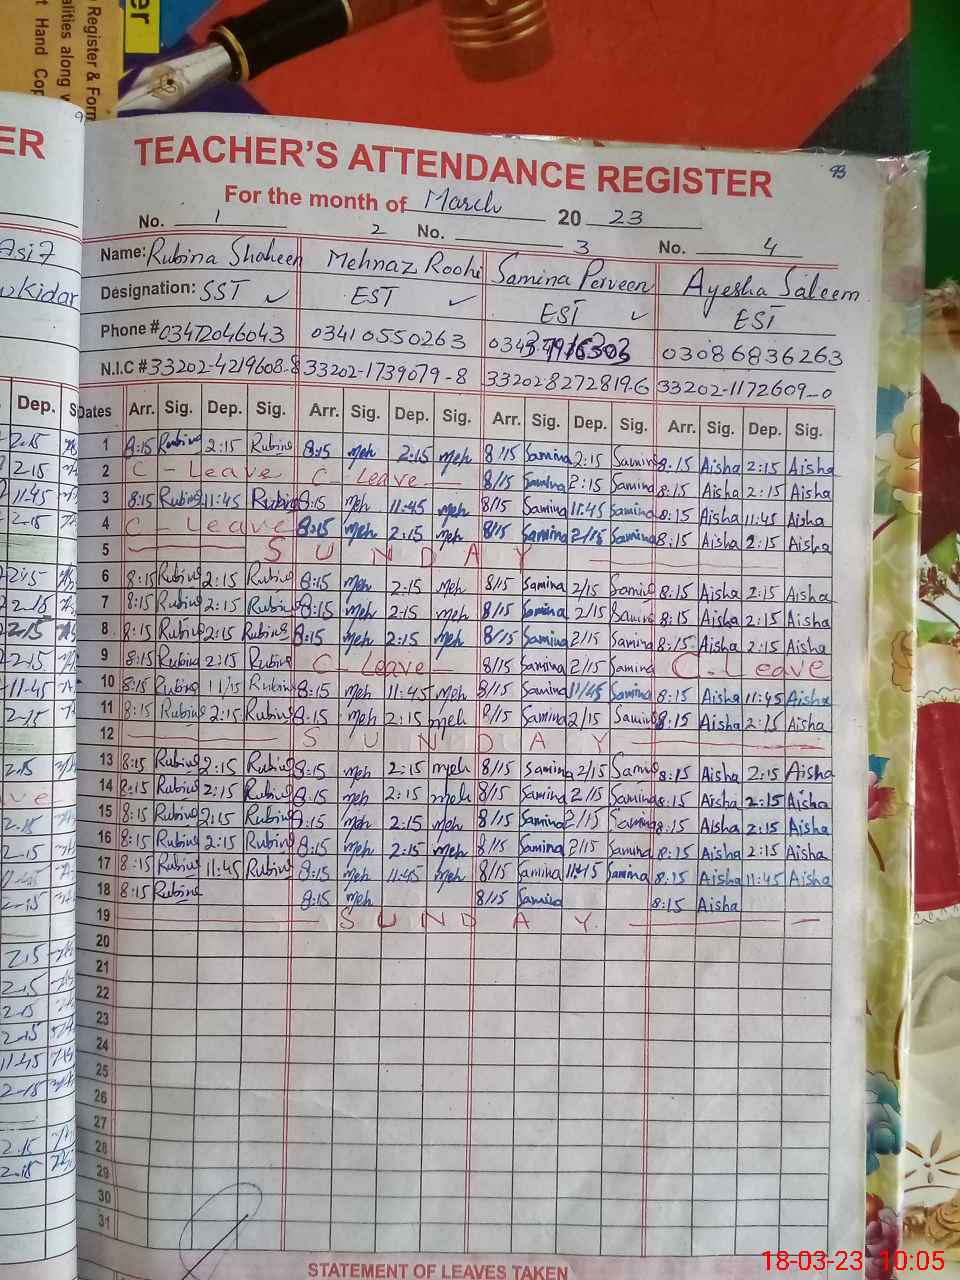 er
Register & Form
alities along w
t Hand Cop
ER
Asif
Kidar
Dep.
TEACHER'S ATTENDANCE REGISTER
93
For the month of March 2023
No. 1 2 No. 3 No. 4
Name: Rubina Shaheen Mehnaz Roohi Samina Perveen Ayesha Saleem
Designation: SST ✓ EST ✓ EST ✓ EST
Phone # 03472046043 03410550263 03086836263
N.I.C # 33202-4219608-8 33202-1739079-8 33202-8272819-6 33202-1172609-0
Dates Arr. Sig. Dep. Sig. Arr. Sig. Dep. Sig. Arr. Sig. Dep. Sig. Arr. Sig. Dep. Sig.
1 8:15 Rubina 2:15 Rubina 8:15 meh 2:15 meh 8/15 Samina 2:15 Samina 8:15 Aisha 2:15 Aisha
2 C-Leave C-Leave 8/15 Samina 2:15 Samina 8:15 Aisha 2:15 Aisha
3 8:15 Rubina 11:45 Rubina 8:15 meh 11:45 meh 8/15 Samina 11:45 Samina 8:15 Aisha 11:45 Aisha
4 C-Leave 8:15 meh 2:15 meh 8/15 Samina 2/15 Samina 8:15 Aisha 2:15 Aisha
5 SUNDAY
6 8:15 Rubina 2:15 Rubina 8:15 meh 2:15 meh 8/15 Samina 2/15 Samina 8:15 Aisha 2:15 Aisha
7 8:15 Rubina 2:15 Rubina 8:15 meh 2:15 meh 8/15 Samina 2/15 Samina 8:15 Aisha 2:15 Aisha
8 8:15 Rubina 2:15 Rubina 8:15 meh 2:15 meh 8/15 Samina 2/15 Samina 8:15 Aisha 2:15 Aisha
9 8:15 Rubina 2:15 Rubina C-Leave 8/15 Samina 2/15 Samina C-Leave
10 8:15 Rubina 11/15 Rubina 8:15 meh 11:45 meh 8/15 Samina 11/45 Samina 8:15 Aisha 11:45 Aisha
11 8:15 Rubina 2:15 Rubina 8:15 meh 2:15 meh 8/15 Samina 2/15 Samina 8:15 Aisha 2:15 Aisha
12 SUNDAY
13 8:15 Rubina 2:15 Rubina 8:15 meh 2:15 meh 8/15 Samina 2/15 Samina 8:15 Aisha 2:15 Aisha
14 8:15 Rubina 2:15 Rubina 8:15 meh 2:15 meh 8/15 Samina 2/15 Samina 8:15 Aisha 2:15 Aisha
15 8:15 Rubina 2:15 Rubina 8:15 meh 2:15 meh 8/15 Samina 2/15 Samina 8:15 Aisha 2:15 Aisha
16 8:15 Rubina 2:15 Rubina 8:15 meh 2:15 meh 8/15 Samina 2/15 Samina 8:15 Aisha 2:15 Aisha
17 8:15 Rubina 11:45 Rubina 8:15 meh 11:45 meh 8/15 Samina 11:45 Samina 8:15 Aisha 11:45 Aisha
18 8:15 Rubina 8:15 meh 8/15 Samina 8:15 Aisha
19 SUNDAY
20
21
22
23
24
25
26
27
28
29
30
31
STATEMENT OF LEAVES TAKEN
18-03-23 10:05